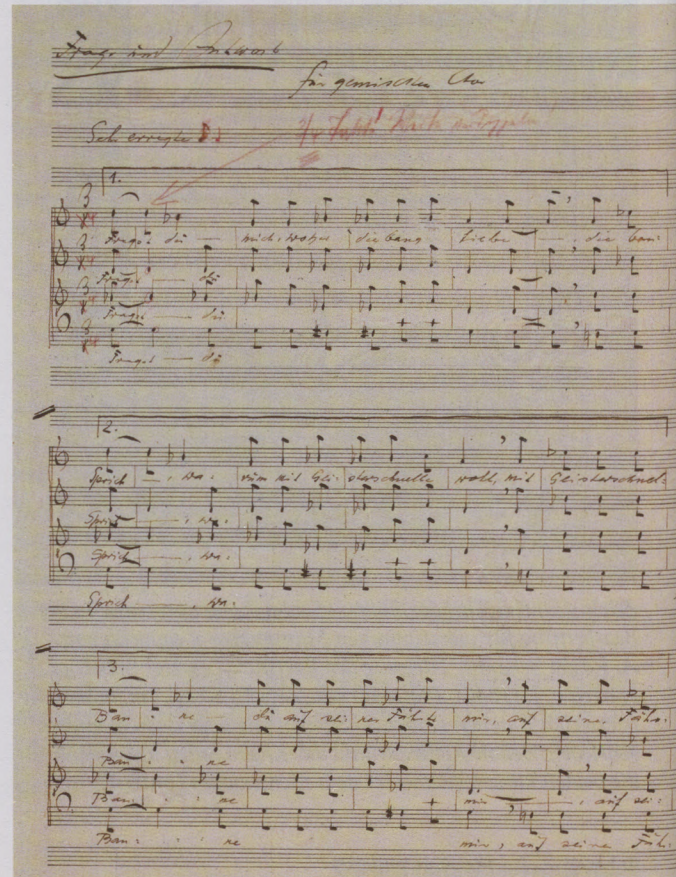 Frage und Antwort
für gemischten Chor
Sehr erregt
3/4 Takt!
1.
Fragst du — mich, woher die bange Liebe —, die ban:
Fragst — du
Fragst — du
Fragst — du
2.
Sprich —, wa: rum mit Gei: sterschnelle wohl, mit Geisterschnel:
Sprich —, wa:
Sprich —, wa:
Sprich —, wa:
3.
Ban : ne — du auf sei: ner Fährte mir, auf seine Fähr:
Ban : : ne
Ban : : : ne mir —, auf sei:
Ban : : : ne mir, auf seine Fähr: